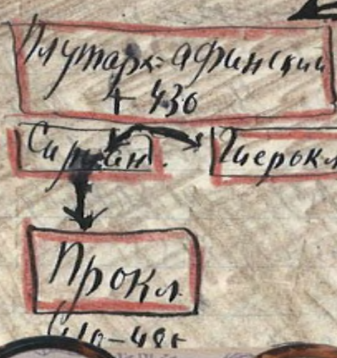 Плутарх афинский
+ 430
Сириан. Гиерокл
Прокл